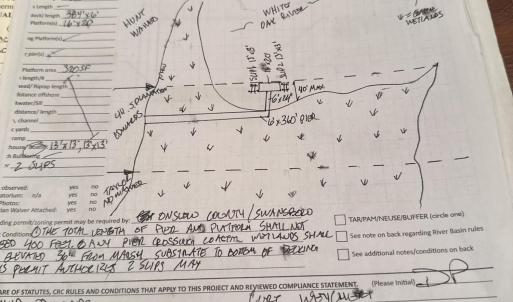 Length
dock) length 384'x6'
Platform(s) 16'x20'
ng Platform(s)
pier(s)
Platform area 320SF
length/#
wall/ Riprap length
distance offshore
kwater/Sill
distance/ length
, channel
c yards
ramp
house 13'x13', 13'x13'
2 SLIPS
observed: yes no
atorium: n/a yes no
Photos: yes no
Waiver Attached: yes no
HUNT
WAIVED
WHITE
OAK RIVER
WETLANDS
SLIP 1 13'x13'
16'x20'
SLIP 2 13'x13'
40' MAX
6'x24'
6'x360' PIER
EDWARDS
TAYLOR
NO WAIVER
ding permit/zoning permit may be required by: ONSLOW COUNTY/SWANSBORO
Conditions ① THE TOTAL LENGTH OF PIER AND PLATFORM SHALL NOT
EED 400 FEET. ② ANY PIER CROSSING COASTAL WETLANDS SHALL
ELEVATED 36" FROM MARSH SUBSTRATE TO BOTTOM OF DECKING
IS PERMIT AUTHORIZES 2 SLIPS MAX
TAR/PAM/NEUSE/BUFFER (circle one)
See note on back regarding River Basin rules
See additional notes/conditions on back
ARE OF STATUTES, CRC RULES AND CONDITIONS THAT APPLY TO THIS PROJECT AND REVIEWED COMPLIANCE STATEMENT. (Please Initial) DP